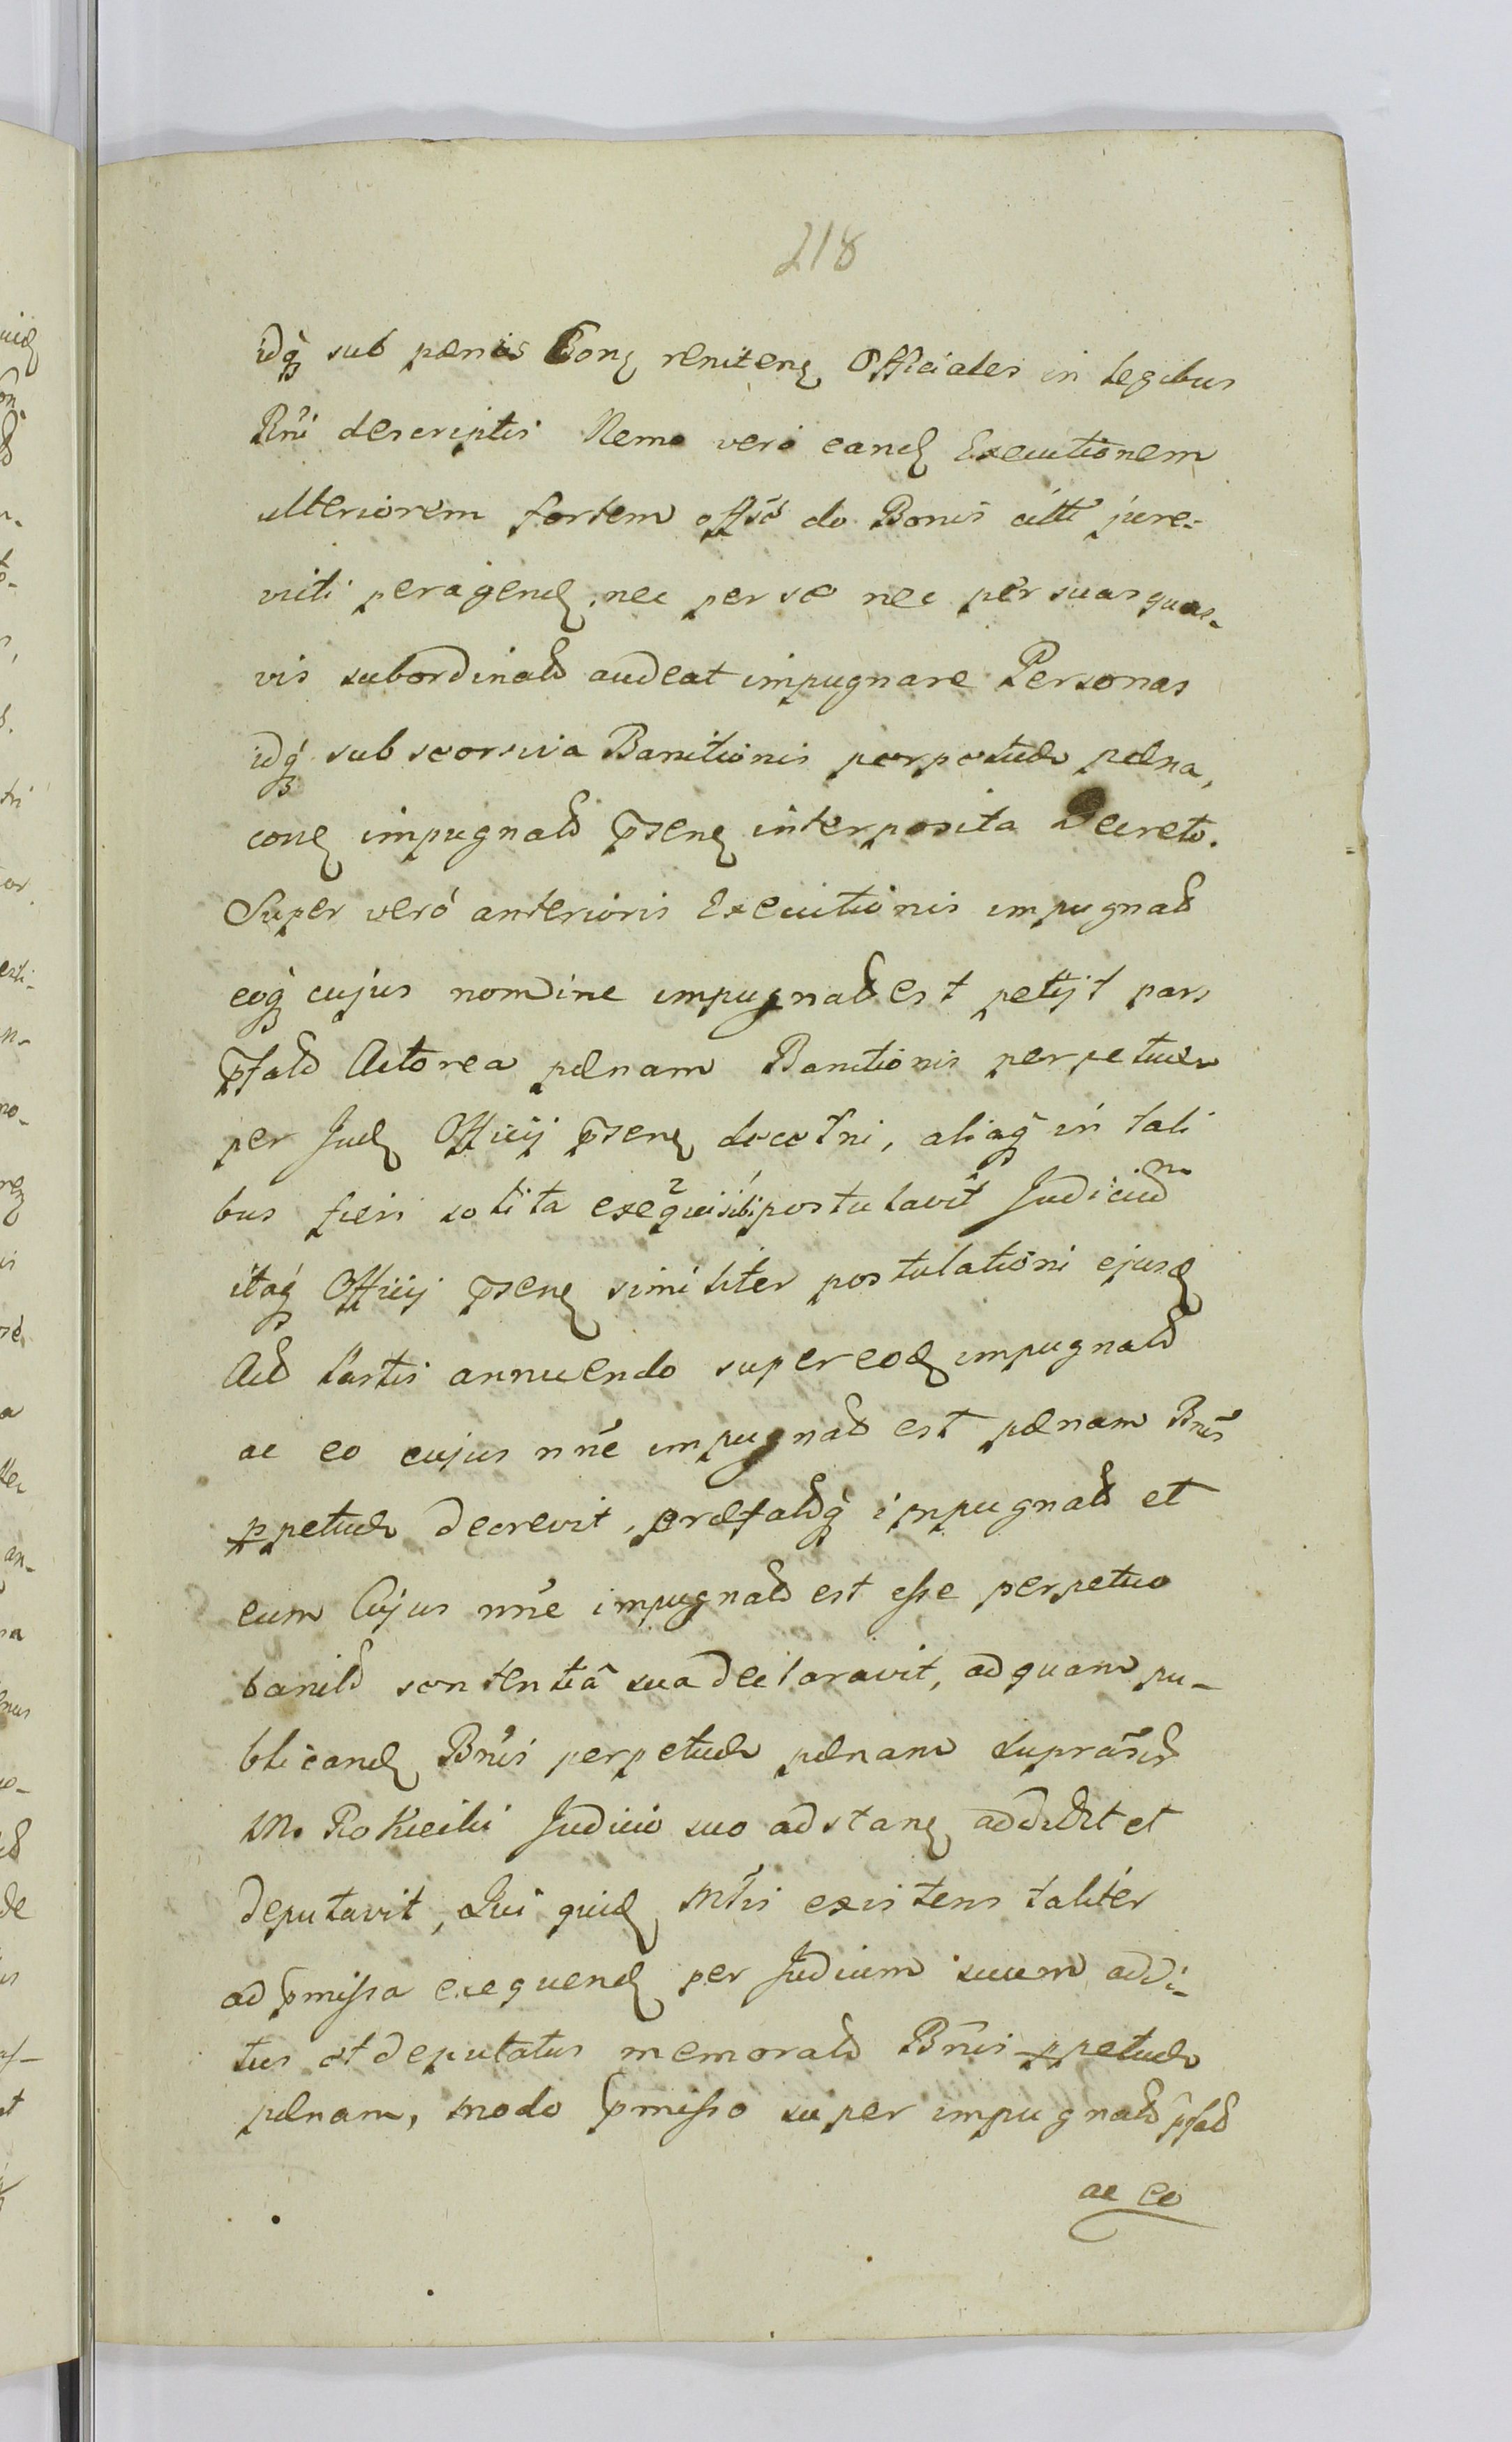 218
idq́ꝫ sub pænis Conꝫ renitenꝫ Officiales in legibus
Rn̄i descriptis Nemo veró eandꝫ Executionem
ulteriorem fortem offső de Bonis jure-
victi peragendꝫ, nec per se nec per suas quas-
vis subordinatas audeat impugnare Personas
idq́ꝫ sub seorsiva Banitionis perpetuæ pæna,
impugnatꝫ p̄senꝫ interposita Decreto.
Super veró anterioris Executionis impugnatꝫ
eoq̀ꝫ cujus nomine impugnatꝫ est petijt pars
p̄fatꝫ Actorea pænam Banitionis perpetuæ
per Judꝫ Officij p̄senꝫ decerni, aliaq̀ꝫ in tali
bus fieri solita exequi sibi postulavit Judiciũm
itaq́ꝫ Officij p̄senꝫ similiter postulationi ejusdꝫ
Actꝫ Partis annuendo super eodꝫ impugnatꝫ
ac eo cujus nn̄e impugnatꝫ est pænam Bn̄is
ꝑpetuæ decrevit, præfatꝫq̀ꝫ impugnatꝫ et
eum Cujus nn̄e impugnatꝫ est esse perpetuo
banitꝫ sententiâ sua declaravit, ad quam pu-
blicandꝫ Bn̄is perpetuæ pænam
M. Rokicki Judicio suo adstanꝫ addidit et
deputavit, Qui quidꝫ Mr̃is existens taliter
ad p̄missa exequendꝫ per Judicium suum addi-
tus et deputatus memoratꝫ Bn̄is ꝑpetuæ
pænam, modo p̄misso super impugnatꝫ p̄fatꝫ
ac eo